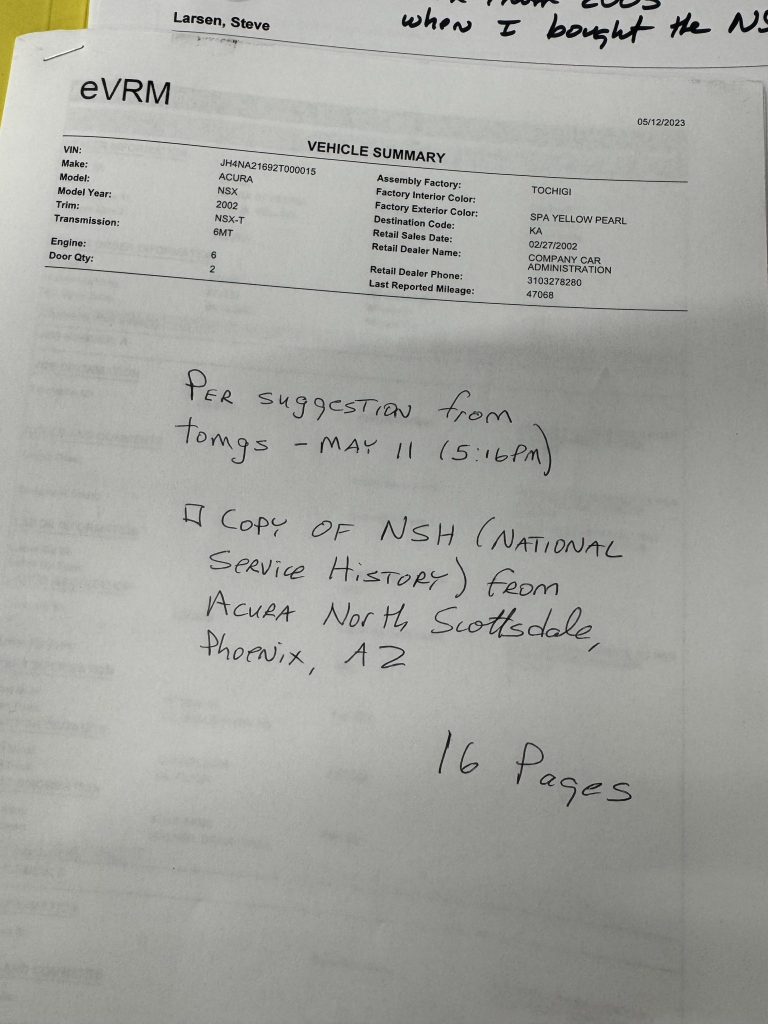 2003
when I bought the NS
Larsen, Steve
eVRM
05/12/2023
VEHICLE SUMMARY
VIN: JH4NA21692T000015
Make: ACURA
Model: NSX
Model Year: 2002
Trim: NSX-T
Transmission: 6MT
Engine: 6
Door Qty: 2
Assembly Factory: TOCHIGI
Factory Interior Color:
Factory Exterior Color: SPA YELLOW PEARL
Destination Code: KA
Retail Sales Date: 02/27/2002
Retail Dealer Name: COMPANY CAR
ADMINISTRATION
Retail Dealer Phone: 3103278280
Last Reported Mileage: 47068
PER suggestion from
tomgs - MAY 11 (5:16PM)
□ COPY OF NSH (NATIONAL
SERVICE HISTORY) from
ACURA North Scottsdale,
Phoenix, AZ
16 Pages